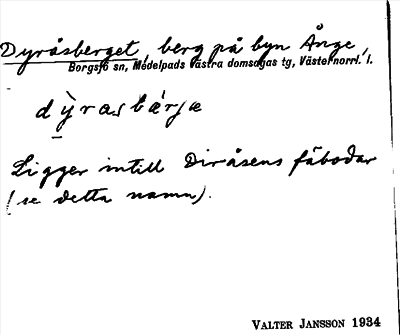 Dyråsberget, berg på byn Ånge,
Borgsjö sn, Medelpads västra domsagas tg, Västernorrl. l.
dỳrasbárjæ
Ligger intill Diråsens fäbodar
(se detta namn).
VALTER JANSSON 1934